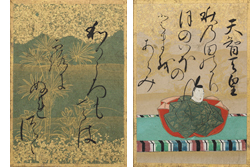 天智天皇
秋乃田のかり
ほのいほの
とまを
あらみ
わかころもては
露に
ぬれ
つゝ